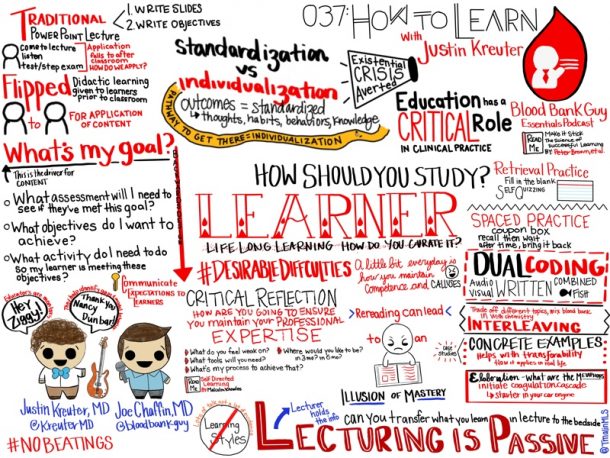 037: HOW TO LEARN
With
Justin Kreuter
Blood Bank Guy
Essentials Podcast
READ ME
Make it Stick
The Science of
Successful Learning
BY Peter Brown, et al.
TRADITIONAL
PowerPoint Lecture
1. WRITE SLIDES
2. WRITE OBJECTIVES
Come to lecture
listen
test/step exam
Application
falls to after
classroom
HOW DO WE APPLY?
Flipped
Didactic learning
given to learners
prior to classroom
TO
FOR APPLICATION
OF CONTENT
Standardization
vs
individualization
outcomes = standardized
thoughts, habits, behaviors, knowledge
PATHWAY TO GET THERE = INDIVIDUALIZATION
Existential
CRISIS
Averted
Education has a
CRITICAL Role
IN CLINICAL PRACTICE
What's my goal?
This is the driver for
CONTENT
What assessment will I need to
see if they've met this goal?
What objectives do I want to
achieve?
What activity do I need to do
so my learner is meeting these
objectives?
Communicate
EXPECTATIONS TO
LEARNERS
HOW SHOULD YOU STUDY?
LEARNER
LIFE LONG LEARNING HOW DO YOU CURATE IT?
#DESIRABLE DIFFICULTIES
A little bit everyday is
how you maintain
Competence and CALLUSES
Retrieval Practice
Fill in the blank
SELF QUIZZING
SPACED PRACTICE
coupon box
recall then wait
after time, bring it back
DUAL CODING!
Audio
Visual
WRITTEN
COMBINED
Fish
Trade off different topics, mix blood bank
in with chemistry
INTERLEAVING
CONCRETE EXAMPLES
helps with transferability
CASE STUDIES
Elaboration - what are the METAPHORS
initiate coagulation cascade
starter in your car engine
CRITICAL REFLECTION
HOW ARE YOU GOING TO ENSURE
YOU MAINTAIN YOUR PROFESSIONAL
EXPERTISE
What do you feel weak on?
Where would you like to be?
in 3 me? in 6 me?
What tools will you need?
What's my process to achieve that?
READ ME
Self Directed
Learning
By Malcolm Knowles
Rereading can lead
to
an
ILLUSION OF MASTERY
Hey
Ziggy!
Thank you
Nancy
Dunbar!
Justin Kreuter, MD
@KreuterMD
Joe Chaffin, MD
@bloodbankguy
#NOBEATINGS
Learning
Styles
Lecturer
holds
the info
can you transfer what you learn in lecture to the bedside
LECTURING IS PASSIVE